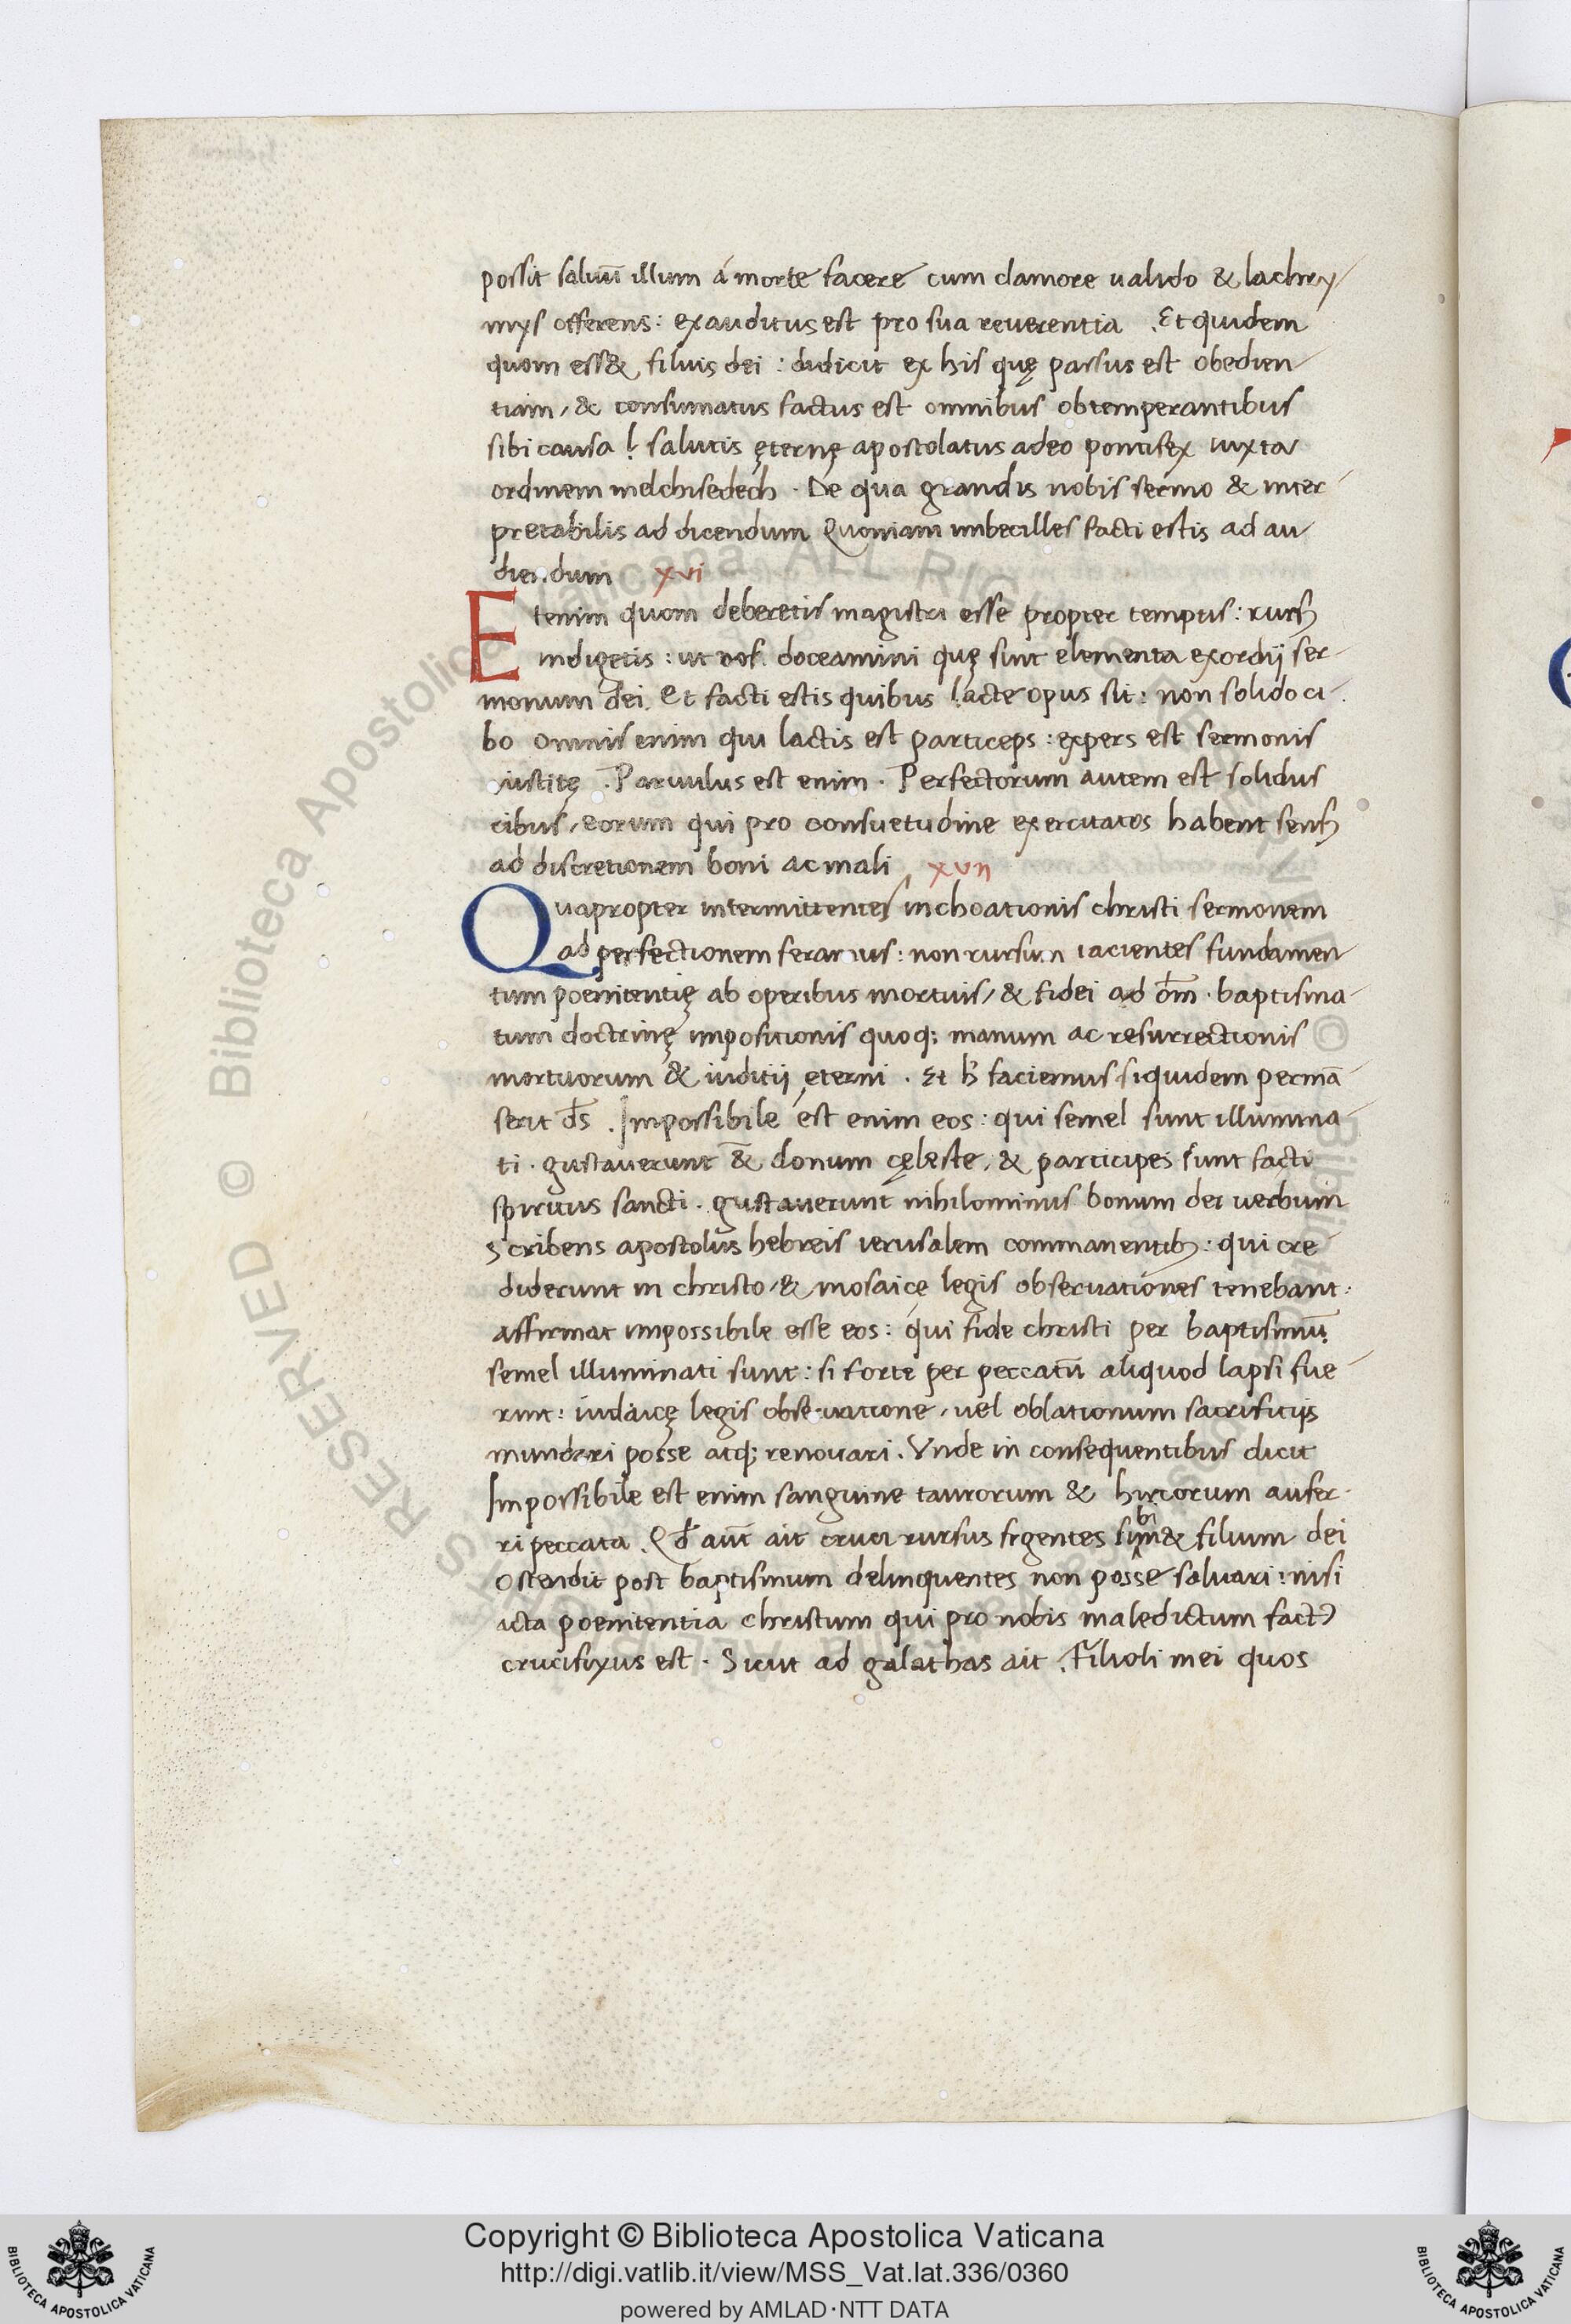 possit saluū illum á morte facere cum clamore ualido & lachry
mys offerens: exauditus est pro sua reuerentia . Et quidem
quom ess& filius dei : didicit ex his quę passus est obedien
tiam, & consumatus factus est omnibus obtemperantibus
sibi causa salutis ęternę apostolatus a deo pontifex iuxta
ordinem melchisedech . De qua grandis nobis sermo & inter
pretabilis ad dicendum Quoniam imbecilles facti estis ad au
diendum xvi
Etenim quom deberetis magistri esse propter tempus: rursꝫ
indigetis: ut uos doceamini quę sunt elementa exordij ser
monum dei. Et facti estis quibus lacte opus sit: non solido ci
bo omnis enim qui lactis est particeps: expers est sermonis
iustitę . Paruulus est enim . Perfectorum autem est solidus
cibus, eorum qui pro consuetudine exercitatos habent sensꝫ
ad discretionem boni ac mali xvii
Quapropter intermittentes inchoationis christi sermonem
ad perfectionem feramus: non rursum iacientes fundamen
tum poenitentię ab operibus mortuis, & fidei ad dm̄ . baptisma
tum doctrinę impositionis quoq; manum ac resurrectionis
mortuorum & iuditij ęterni . Et h' faciemus siquidem permā
serit ds̄ . Impossibile est enim eos: qui semel sunt illumina
ti . gustauerunt &̄ donum cęleste, & participes sunt facti
spiritus sancti . gustauerunt nihilominus bonum dei uerbum
scribens apostolus hebreis ierusalem commanentibꝫ: qui cre
diderunt in christo, & mosaicę legis obseruationes tenebant.
affirmat impossibile esse eos: qui fide christi per baptismū
semel illuminati sunt: si forte per peccatū aliquod lapsi fue
rint: iudaicę legis obseruatione, uel oblationum sacrificijs
mundari posse atq; renouari . Vnde in consequentibus dicit
Impossibile est enim sanguine taurorum & hircorum aufer
ri peccata . Qđ aut̄ ait cruci rursus figentes sibim& filium dei
Ostendit post baptismum delinquentes non posse saluari: nisi
icta poenitentia christum qui pro nobis maledictum factꝰ
crucifixus est . Sicut ad galathas ait . Filioli mei quos
Copyright © Biblioteca Apostolica Vaticana
http://digi.vatlib.it/view/MSS_Vat.lat.336/0360
powered by AMLAD·NTT DATA